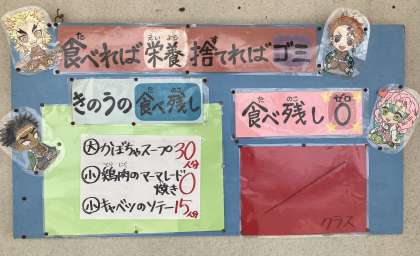 食べれば栄養 捨てればゴミ
きのうの食べ残し
食べ残し0
大 かぼちゃスープ 30人分
小 鶏肉のマーマレード焼き 0
小 キャベツのソテー 15人分
クラス